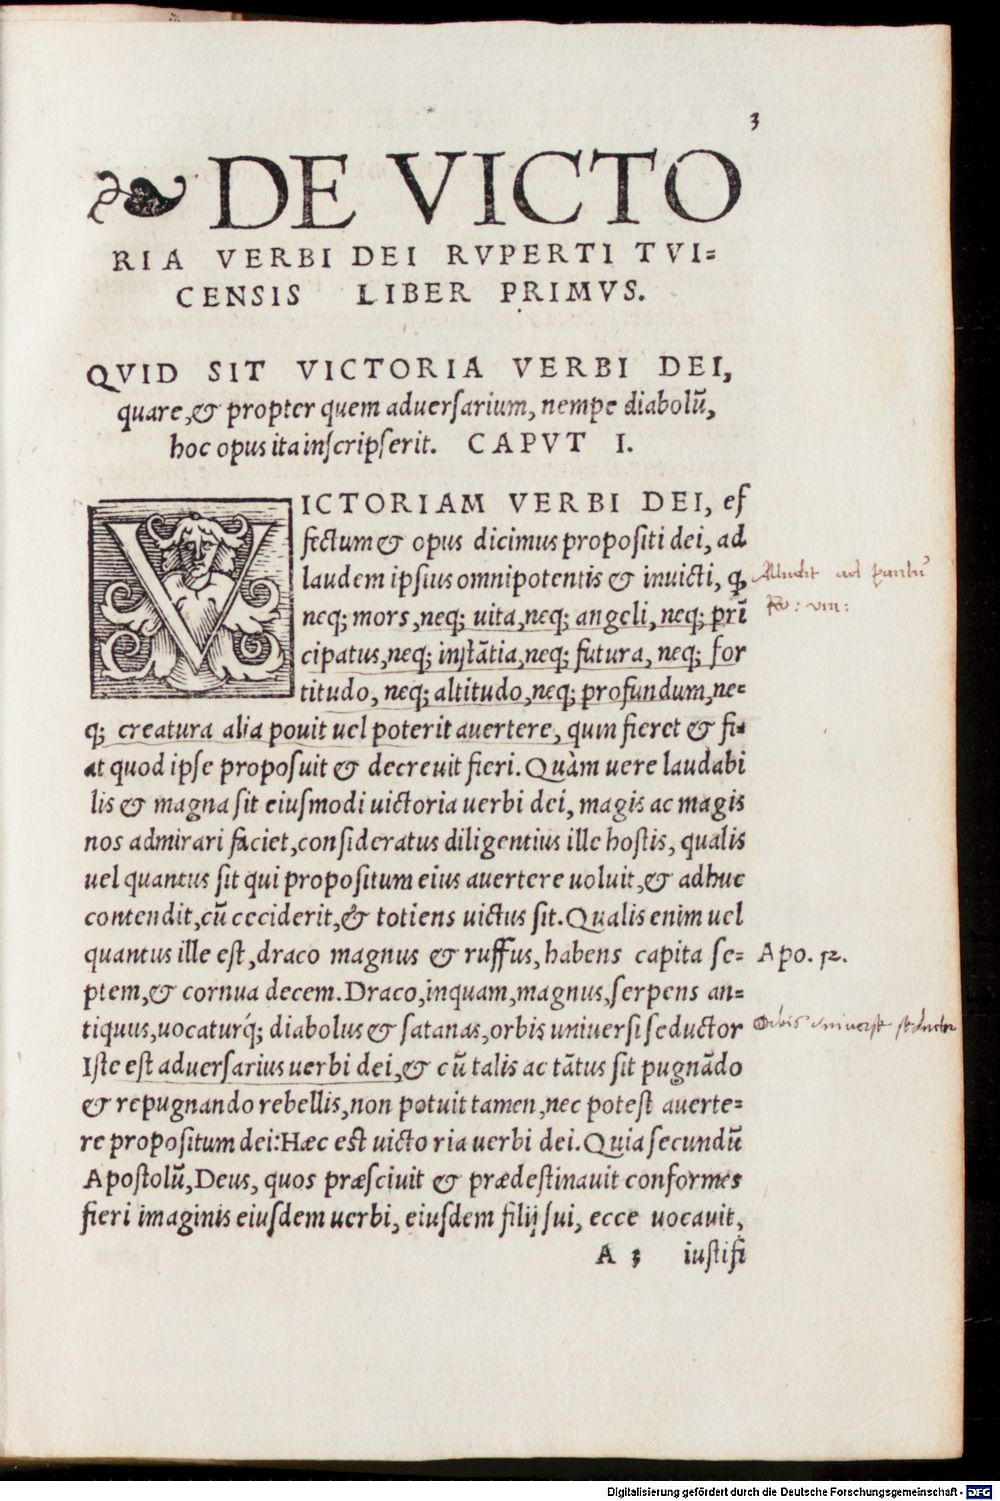 3
DE VICTO
RIA VERBI DEI RVPERTI TVI=
CENSIS LIBER PRIMVS.
QVID SIT VICTORIA VERBI DEI,
quare, & propter quem aduersarium, nempe diabolū,
hoc opus ita inscripserit. CAPVT I.
VICTORIAM VERBI DEI, ef
fectum & opus dicimus propositi dei, ad
laudem ipsius omnipotentis & inuicti, ꝙ
Alludit ad Paulū
Ro: VIII:
neq; mors, neq; uita, neq; angeli, neq; prī
cipatus, neq; instātia, neq; futura, neq; for
titudo, neq; altitudo, neq; profundum, ne=
q; creatura alia potuit uel poterit auertere, quin fieret & fi=
at quod ipse proposuit & decreuit fieri. Quàm uere laudabi
lis & magna sit eiusmodi uictoria uerbi dei, magis ac magis
nos admirari faciet, consideratus diligentius ille hostis, qualis
uel quantus sit qui propositum eius auertere uoluit, & adhuc
contendit, cū ceciderit, & totiens uictus sit. Qualis enim uel
quantus ille est, draco magnus & ruffus, habens capita se=
Apo. 12.
ptem, & cornua decem. Draco, inquam, magnus, serpens an=
tiquus, uocaturq́; diabolus & satanas, orbis uniuersi seductor
Orbis uniuersi seductor
Iste est aduersarius uerbi dei, & cū talis ac tātus sit pugnādo
& repugnando rebellis, non potuit tamen, nec potest auerte=
re propositum dei: Hæc est uictoria uerbi dei. Quia secundū
Apostolū, Deus, quos præsciuit & prædestinauit conformes
fieri imaginis eiusdem uerbi, eiusdem filij sui, ecce uocauit,
A 3 iustifi
Digitalisierung gefördert durch die Deutsche Forschungsgemeinschaft - DFG